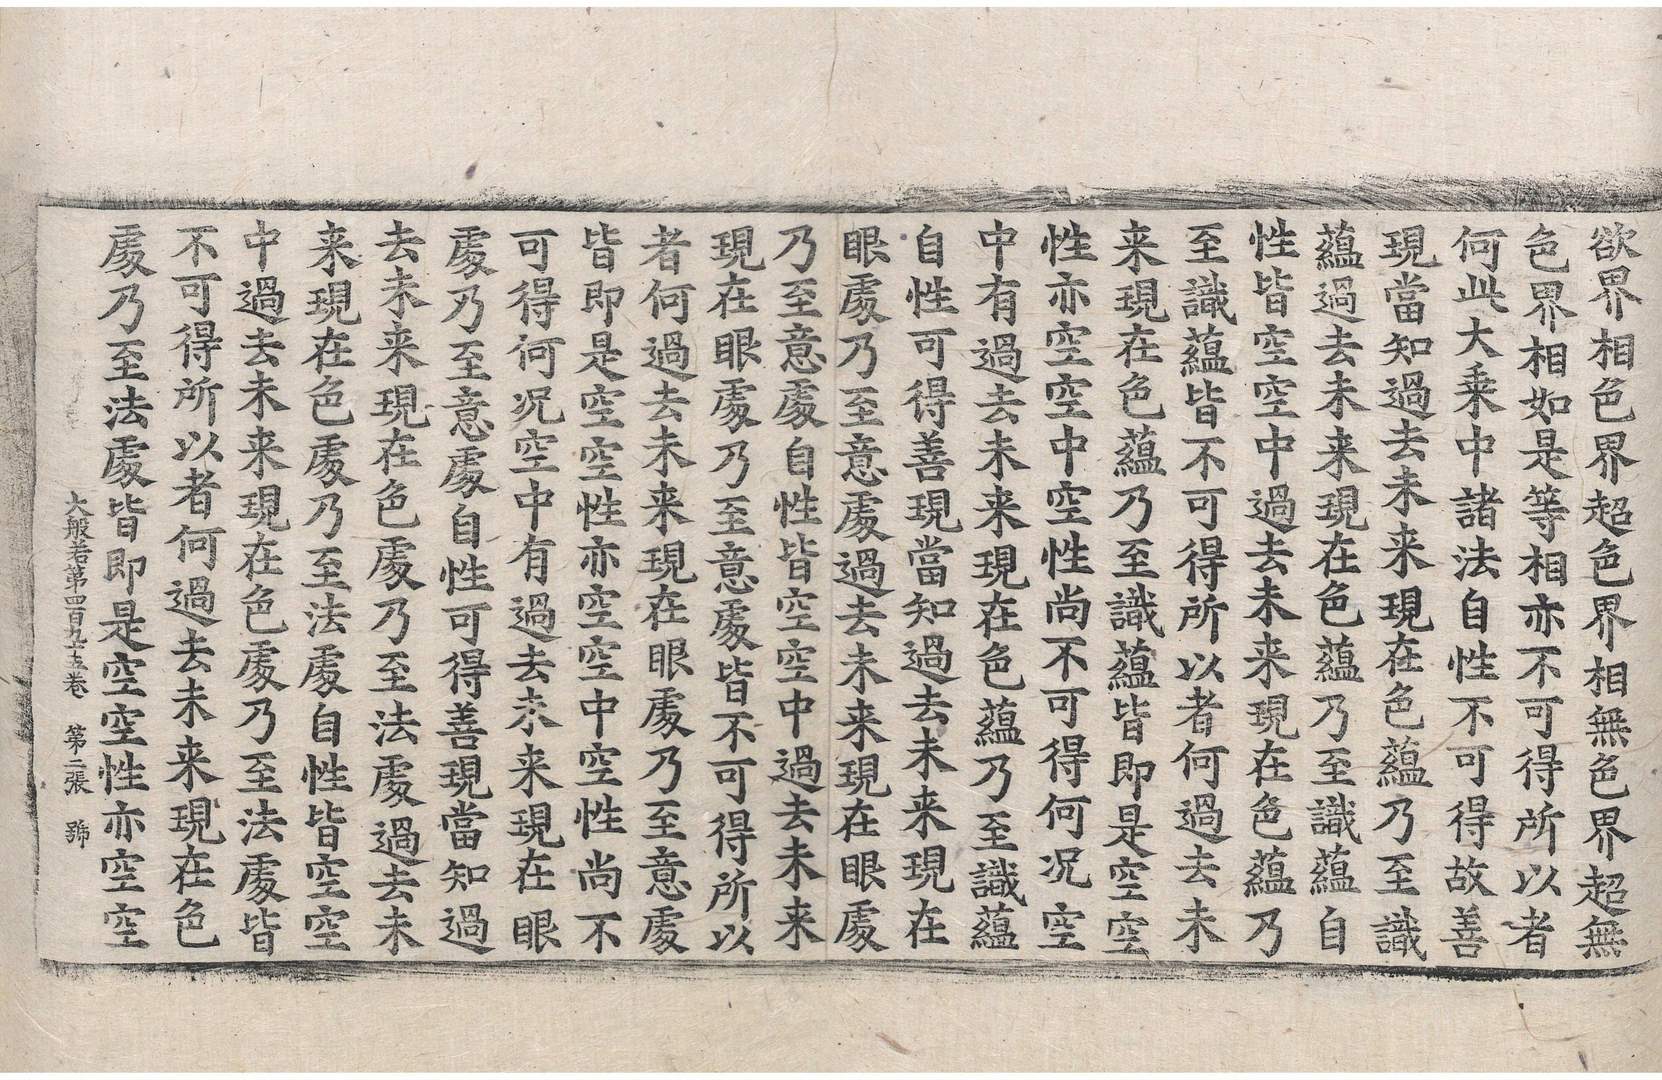 欲界相色界超色界相無色界超無
色界相如是等相亦不可得所以者
何此大乘中諸法自性不可得故善
現當知過去未来現在色蘊乃至識
蘊過去未来現在色蘊乃至識蘊自
性皆空空中過去未来現在色蘊乃
至識蘊皆不可得所以者何過去未
来現在色蘊乃至識蘊皆即是空空
性亦空空中空性尚不可得何况空
中有過去未来現在色蘊乃至識蘊
自性可得善現當知過去未来現在
眼處乃至意處過去未来現在眼處
乃至意處自性皆空空中過去未来
現在眼處乃至意處皆不可得所以
者何過去未来現在眼處乃至意處
皆即是空空性亦空空中空性尚不
可得何况空中有過去未来現在眼
處乃至意處自性可得善現當知過
去未来現在色處乃至法處過去未
来現在色處乃至法處自性皆空空
中過去未来現在色處乃至法處皆
不可得所以者何過去未来現在色
處乃至法處皆即是空空性亦空空
大般若第四百九十五卷 第二張 號